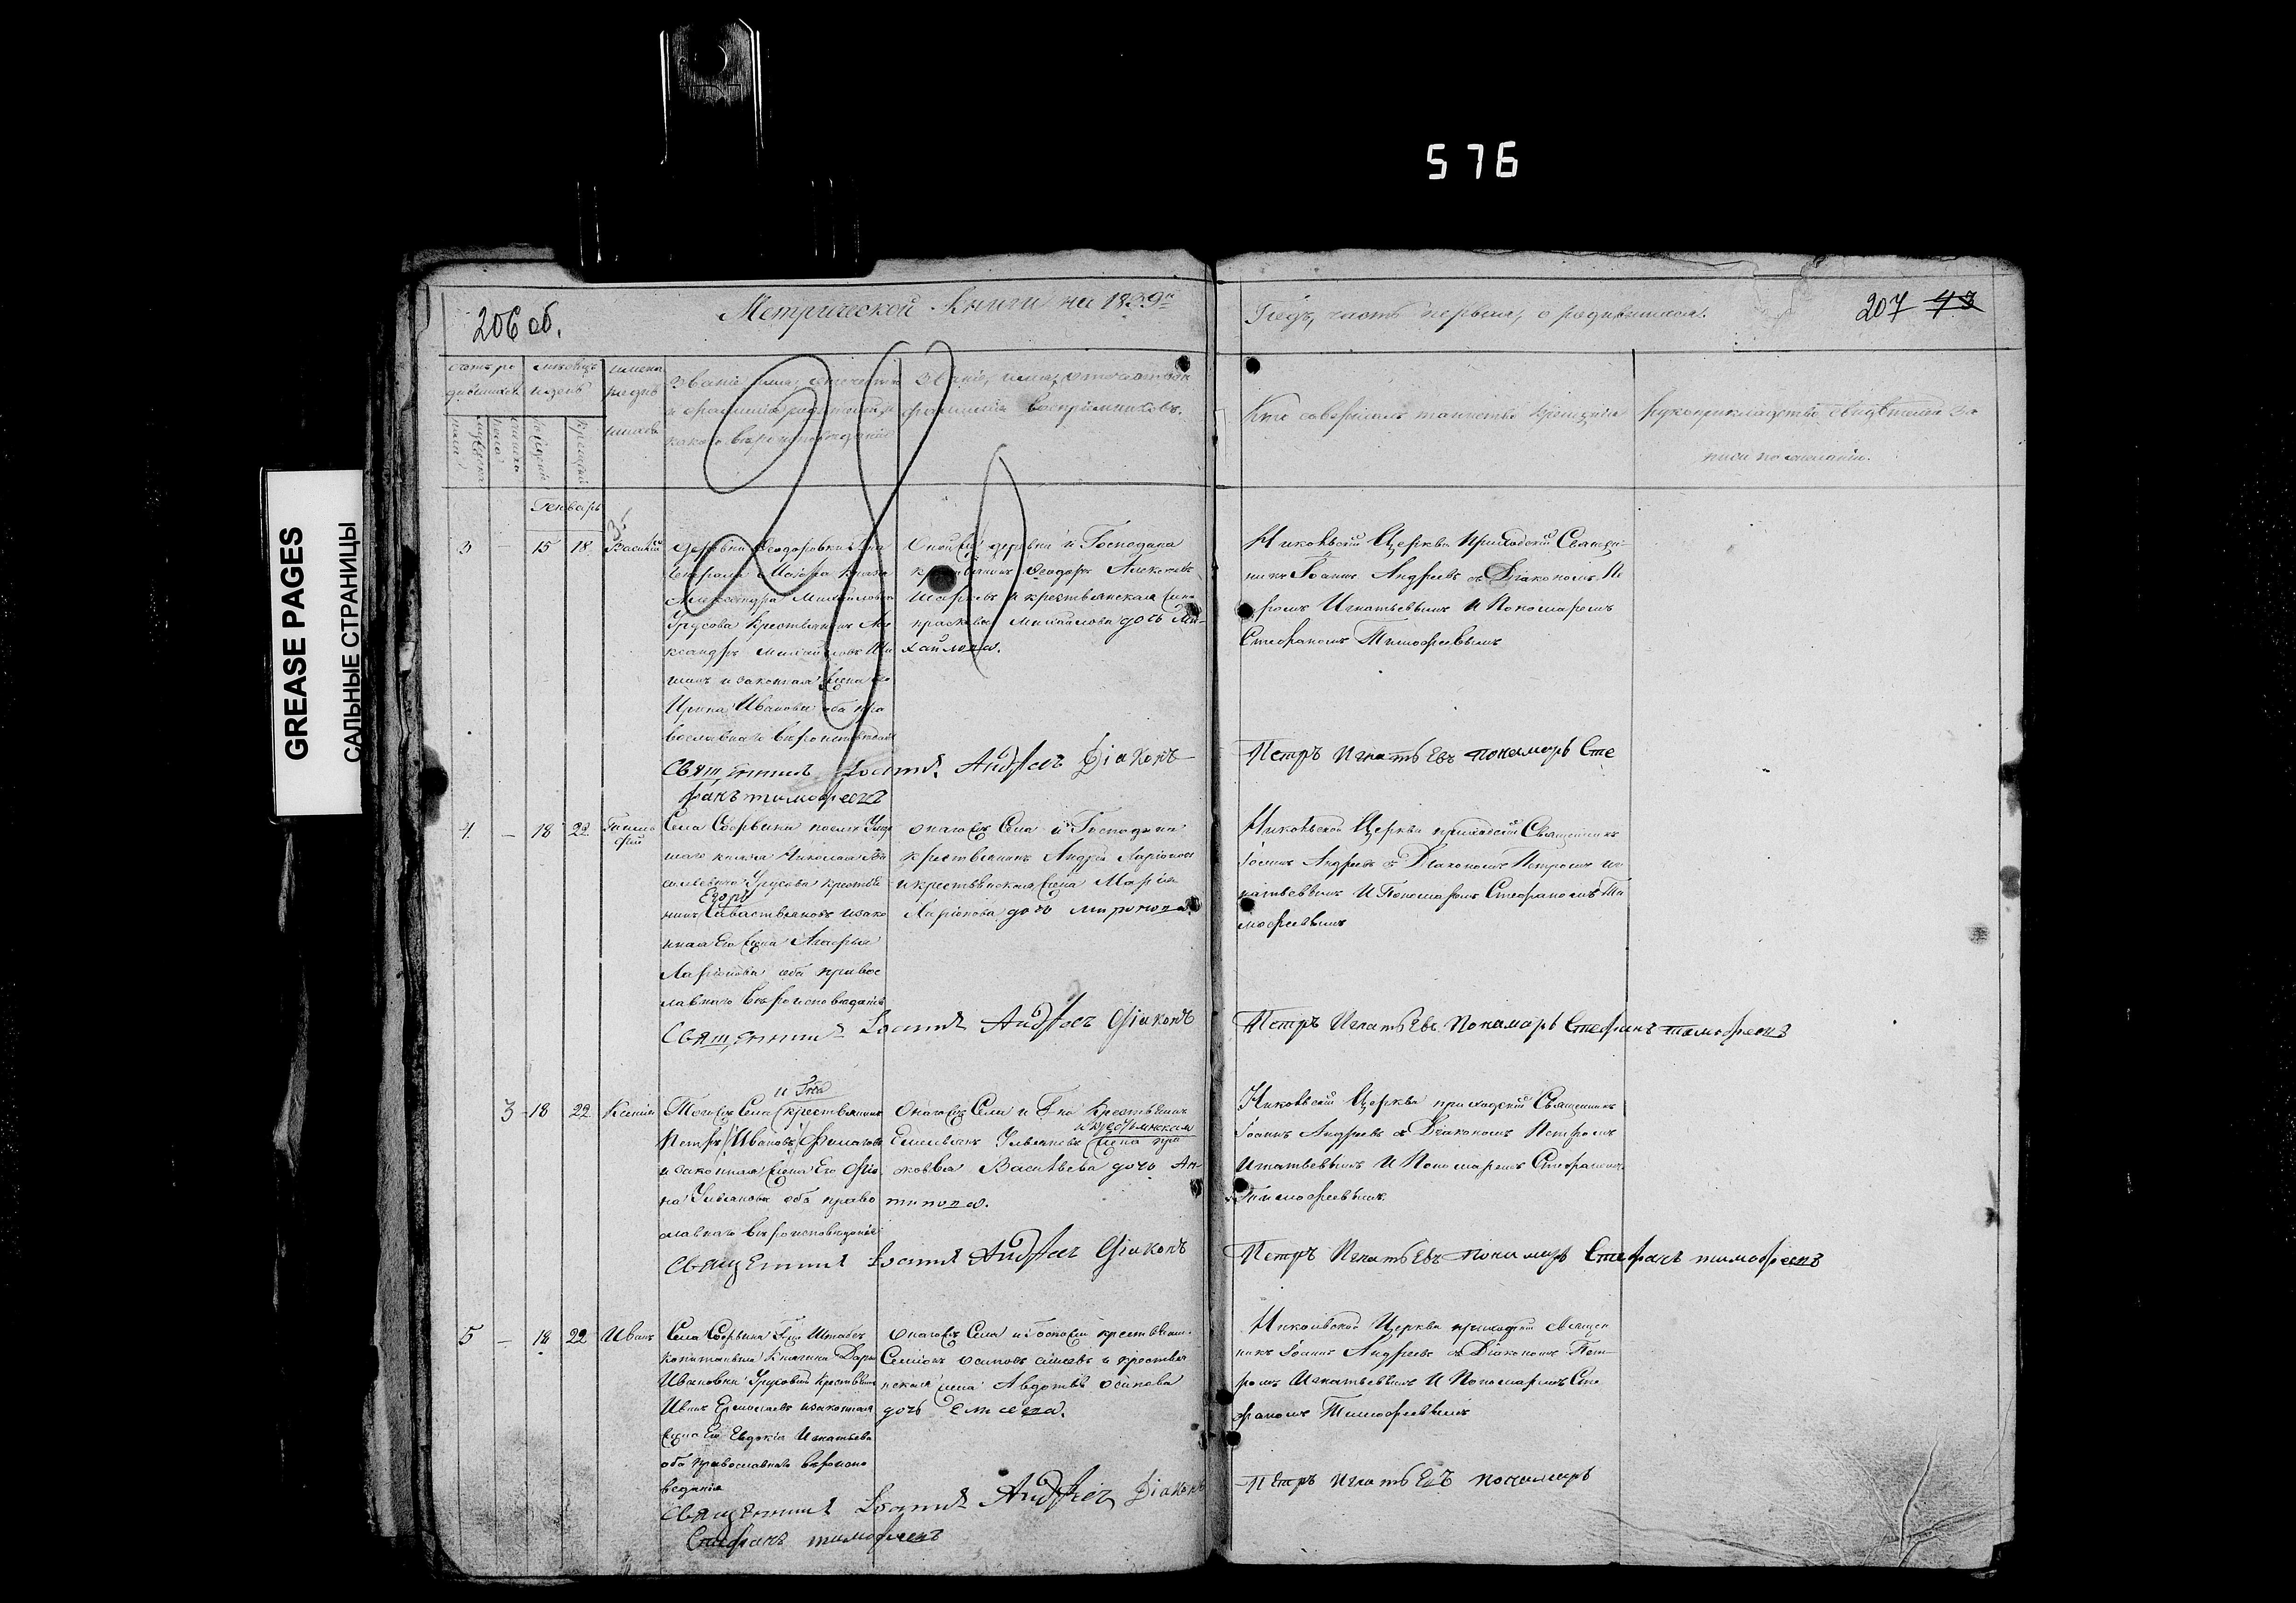 576
GREASE PAGES
САЛЬНЫЕ СТРАНИЦЫ
206 об.
Метрической Книги на 1839й
Годъ, часть первая, о родившихся.
207 43
мѣсяцъ
и день
имена
родив
шихся
званіе, имя, отчество
и фамилія родителей и
какого вѣроисповѣданія
Званіе, имя, отчество и
фамилія воспріемниковъ.
Кто совершалъ таинство крещенія
Рукоприкладство свидѣтелей за
писи по желанію.
Генварь
3 – 15 18 Василій
деревни Феодоровки
Маіора Князя
Александра Михайлова
Урусова Крестьянинъ Але
ксандръ Михайловъ
и законная жена его
Ирина Иванова оба пра
вославнаго вѣроисповѣданія
Оной же деревни и Господина
крестьянинъ Феодоръ Алексѣевъ
и крестьянская жена
Михайлова дочь Ми-
хайлова.
Никольской Церкви приходскій Священ-
никъ Іоаннъ Андреевъ съ Діакономъ Пе
тромъ Игнатьевымъ и Пономаремъ
Стефаномъ Тимофеевымъ
Священникъ Іоаннъ Андреевъ Діаконъ
Петръ Игнатьевъ пономарь Сте
фанъ тимофеевъ
4 – 18 22 Тимо
фей
Села
князя Николая
Урусова крестья
Егоръ
нинъ Савастьяновъ и зако
нная его жена
Ларіонова оба правос
лавнаго вѣроисповѣданія
онаго же Села и Господина
крестьянинъ Андрей Ларіоновъ
и крестьянская жена Марія
Ларіонова дочь миронова.
Никольской Церкви приходскій Священникъ
Іоаннъ Андреевъ съ Діакономъ Петромъ Иг
натьевымъ и Пономаремъ Стефаномъ Ти
мофеевымъ
Священникъ Іоаннъ Андреевъ Діаконъ
Петръ Игнатьевъ Пономарь Стефанъ тимофеевъ
3 18 22 Ксенія
Того же Села крестьянинъ
Петръ Ивановъ Филатовъ
и законная жена Его
Ульянова оба право
славнаго вѣроисповѣданія
Онаго же Села и Г-на Крестьянинъ
и крестьянская
Емельянъ Ульяновъ жена Пра
сковья Васильева дочь Ан-
типова.
Никольской Церкви приходскій Священникъ
Іоаннъ Андреевъ съ Діакономъ Петромъ
Игнатьевымъ и Пономаремъ Стефаномъ
Тимофеевымъ
Священникъ Іоаннъ Андреевъ Діаконъ
Петръ Игнатьевъ пономарь Стефанъ тимофеевъ
5 – 18 22 Иванъ
Села Штабсъ
капитанши Княгини Дарьи
Ивановны Урусовой Крестьянинъ
Иванъ Ермолаевъ и законная
жена Его Евдокія Игнатьева
оба православнаго вѣроиспо
веданія
Онаго же Села и Госпожи крестьянинъ
Семіонъ осиповъ и крестья
нская жена Авдотья осипова
дочь
Никольской Церкви приходскій священ
никъ Іоаннъ Андреевъ съ Діакономъ Пет-
ромъ Игнатьевымъ и Пономаремъ Сте
фаномъ Тимофеевымъ
Священникъ Іоаннъ Андреевъ Діаконъ
Петръ Игнатьевъ пономарь
Стефанъ тимофеевъ